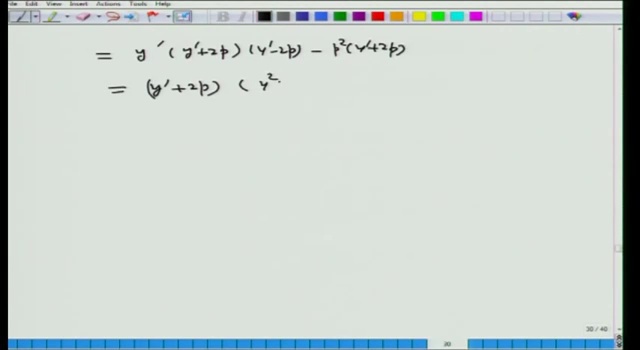 File Edit View Insert Actions Tools Help
= y′ (y′+2p) (y′-2p) - p²(y′+2p)
= (y′+2p) ( y²
30 / 40
30